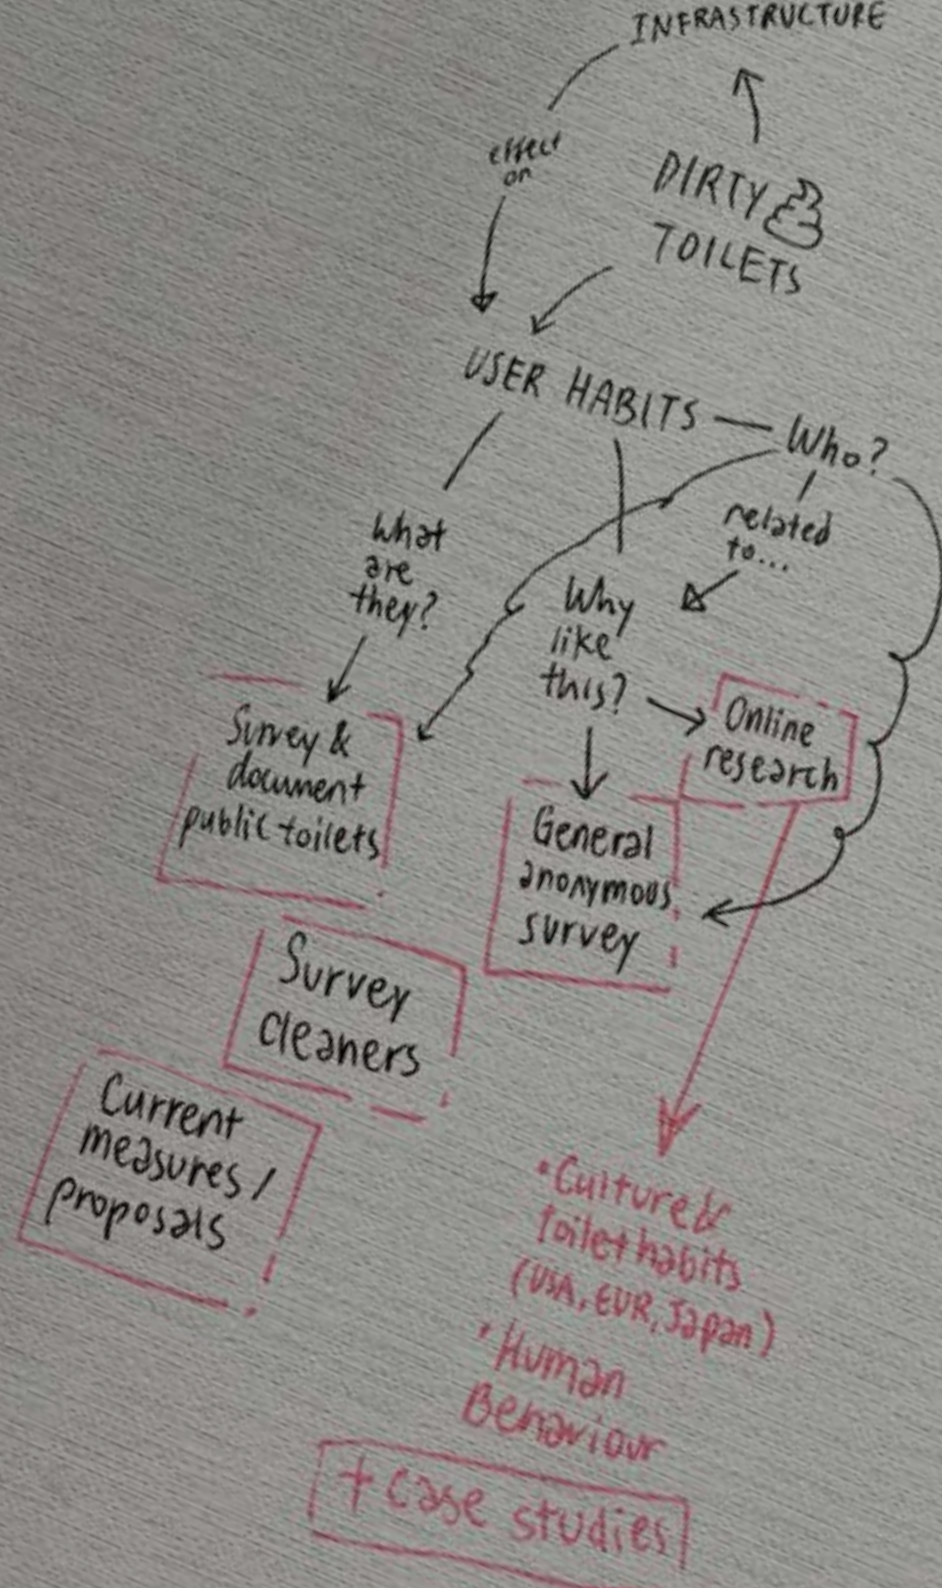 INFRASTRUCTURE
effect
on
DIRTY
TOILETS
USER HABITS
Who?
related
to...
What
are
they?
Why
like
this?
Online
research
Survey &
document
public toilets
General
anonymous
survey
Survey
cleaners
Current
measures /
proposals
• Culture &
toilet habits
(USA, EUR, Japan)
• Human
Behaviour
+ case studies